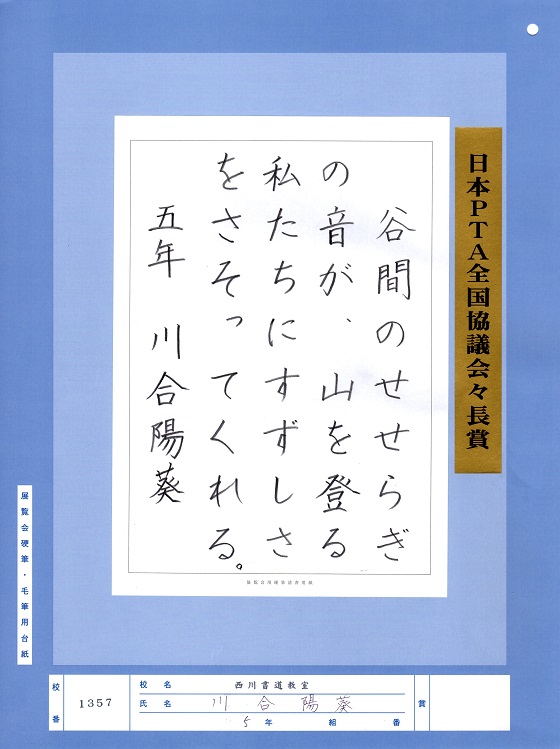 日本PTA全国協議会々長賞
谷間のせせらぎ
の音が、山を登る
私たちにすずしさ
をさそってくれる。
五年 川合陽葵
展覧会用硬筆清書用紙
展覧会硬筆・毛筆用台紙
校番 1357
校名 西川書道教室
氏名 川合陽葵
5年 組 番
賞